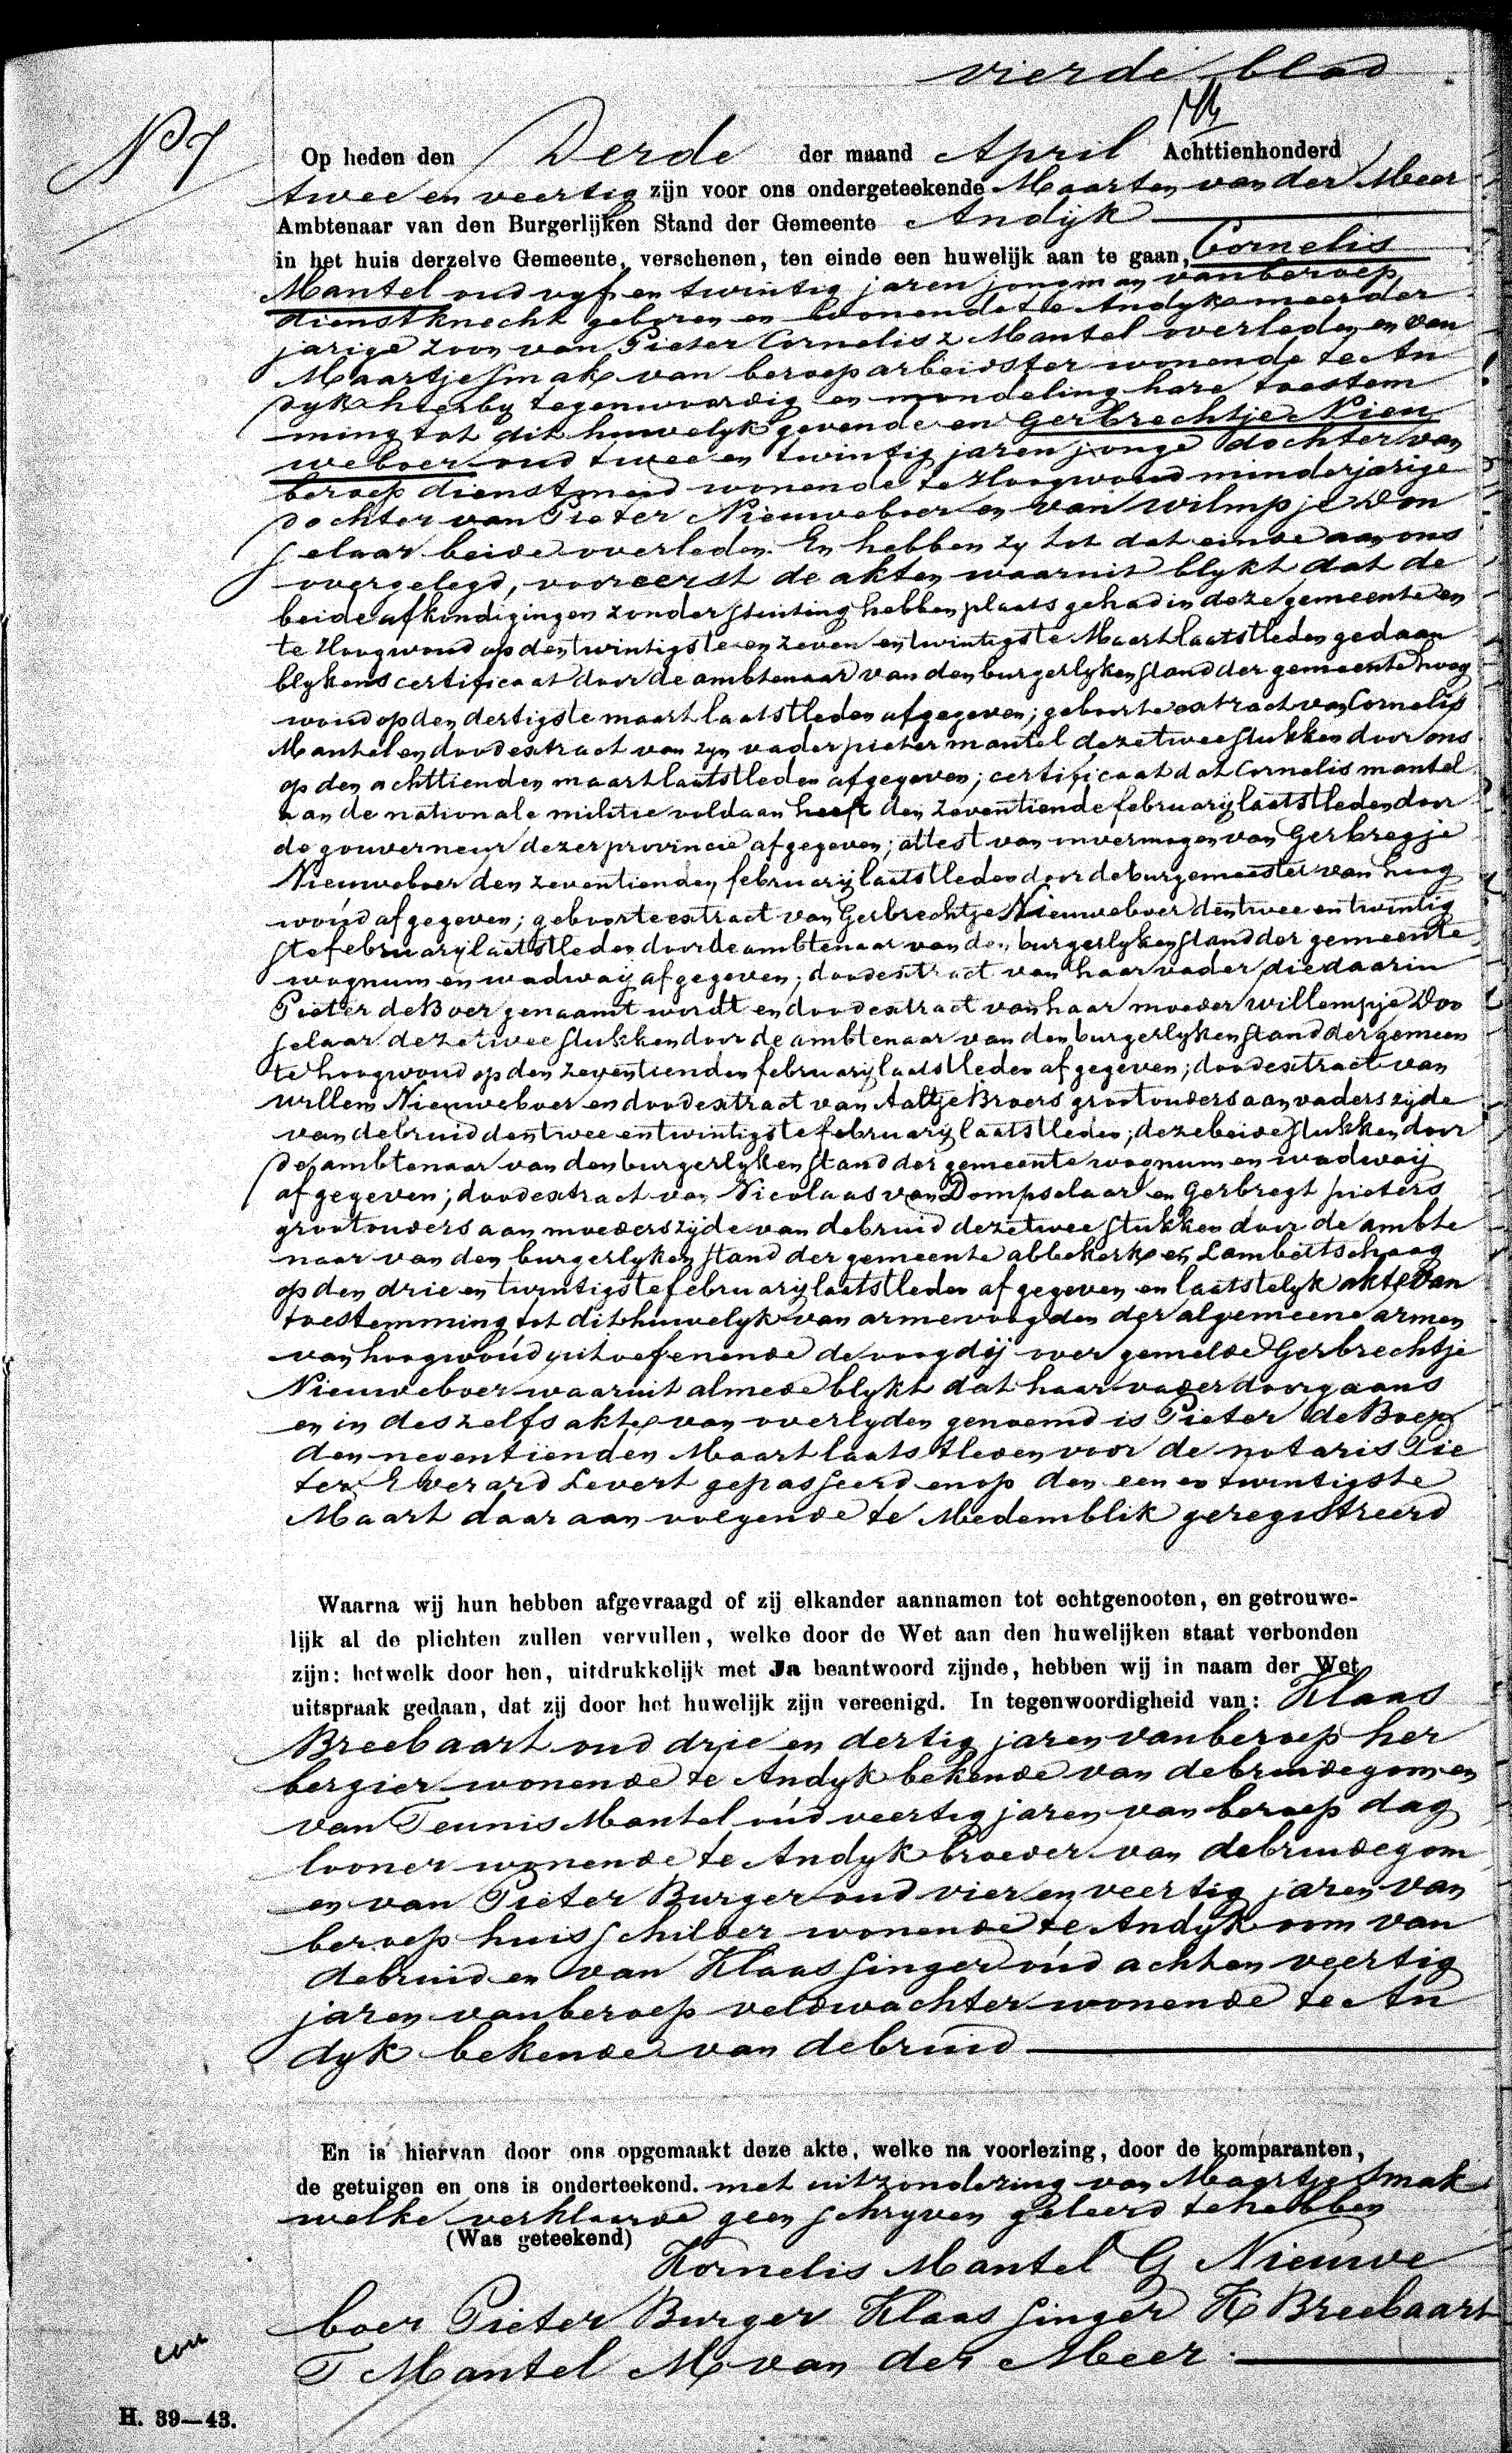 vierde blad
No 7
Op heden den Derde der maand April Achttienhonderd
twee en veertig zijn voor ons ondergeteekende Maarten van der Meer
Ambtenaar van den Burgerlijken Stand der Gemeente Andijk
in het huis derzelve Gemeente, verschenen, ten einde een huwelijk aan te gaan, Cornelis
Mantel oud vyf en twintig jaren jongman van beroep
dienstknecht geboren en wonende te Andyk meerder
jarige zoon van Pieter Cornelisz Mantel overleden en van
Maartje Smak van beroep arbeidster wonende te An
dyk hierby tegenwoordig en mondeling hare toestem
ming tot dit huwelyk gevende en Gerbrechtje Nieu
weboer oud twee en twintig jaren jonge dochter van
beroep dienstmeid wonende te Hoogwoud minderjarige
dochter van Pieter Nieuweboer en van Wilmpje Don
selaar beide overleden. En hebben zy tot dat einde aan ons
overgelegd, vooreerst de akten waaruit blykt dat de
beide afkondigingen zonder stuiting hebben plaats gehad in deze gemeente en
te Hoogwoud op den twintigste en zeven en twintigste Maart laatstleden gedaan
blykens certificaat door de ambtenaar van den burgerlyken stand der gemeente hoog
woud op den dertigste maart laatstleden afgegeven; geboorte extract van Cornelis
Mantel en doodextract van zyn vader pieter mantel deze twee stukken door ons
op den achttienden maart laatstleden afgegeven; certificaat dat Cornelis mantel
aan de nationale militie voldaan heeft den zeventiende februarij laatstleden door
de gouverneur dezer provincie afgegeven; attest van onvermogen van Gerbregje
Nieuweboer den zeventienden februarij laatstleden door de burgemeester van hoog
woud afgegeven; geboorte extract van Gerbrechtje Nieuweboer den twee en twintig
ste februarij laatstleden door de ambtenaar van den burgerlyken stand der gemeente
wognum en wadway afgegeven; doodextract van haar vader die daarin
Pieter de Boer genaamt wordt en doodextract van haar moeder willempje Don
selaar deze twee stukken door de ambtenaar van den burgerlyken stand der gemeen
te hoogwoud op den zeventienden februarij laatstleden afgegeven; doodextract van
willem Nieuweboer en doodextract van Aaltje Broers grootouders aan vaders zijde
van de bruid den twee en twintigste februarij laatstleden; deze beide stukken door
de ambtenaar van den burgerlyken stand der gemeente wognum en wadwaij
afgegeven; doodextract van Nicolaas van Dompselaar en Gerbregt pieters
grootouders aan moeders zijde van de bruid deze twee stukken door de ambte
naar van den burgerlyken stand der gemeente abbekerk en Lambertschaag
op den drie en twintigste februarij laatstleden afgegeven en laatstelyk akte van
toestemming tot dit huwelyk van armevoogden der algemeene armen
van hoogwoud uitoefenende de voogdij over gemelde Gerbrechtje
Nieuweboer waaruit almede blykt dat haar vader doorgaans
en in deszelfs akte van overlyden genoemd is Pieter de Boer
den negentienden Maart laatstleden voor de notaris Pie
ter Everard Levert gepasseerd en op den een en twintigste
Maart daar aan volgende te Medemblik geregistreerd
Waarna wij hun hebben afgevraagd of zij elkander aannamen tot echtgenooten, en getrouwe-
lijk al de plichten zullen vervullen, welke door de Wet aan den huwelijken staat verbonden
zijn: hetwelk door hen, uitdrukkelijk met Ja beantwoord zijnde, hebben wij in naam der Wet
uitspraak gedaan, dat zij door het huwelijk zijn vereenigd. In tegenwoordigheid van: Klaas
Breebaart oud drie en dertig jaren van beroep her
bergier wonende te Andyk bekende van de bruidegom en
van Teunis Mantel oud veertig jaren van beroep dag
looner wonende te Andyk broeder van de bruidegom
en van Pieter Burger oud vier en veertig jaren van
beroep huisschilder wonende te Andyk oom van
de bruid en van Klaas Singer oud acht en veertig
jaren van beroep veldwachter wonende te An
dyk bekende van de bruid
En is hiervan door ons opgemaakt deze akte, welke na voorlezing, door de komparanten,
de getuigen en ons is onderteekend. met uitzondering van Maartje Smak
welke verklaarde geen schryven geleerd te hebben
(Was geteekend)
Kornelis Mantel G Nieuwe
boer Pieter Burger Klaas Singer K Breebaart
T Mantel M van der Meer
H. 39—43.